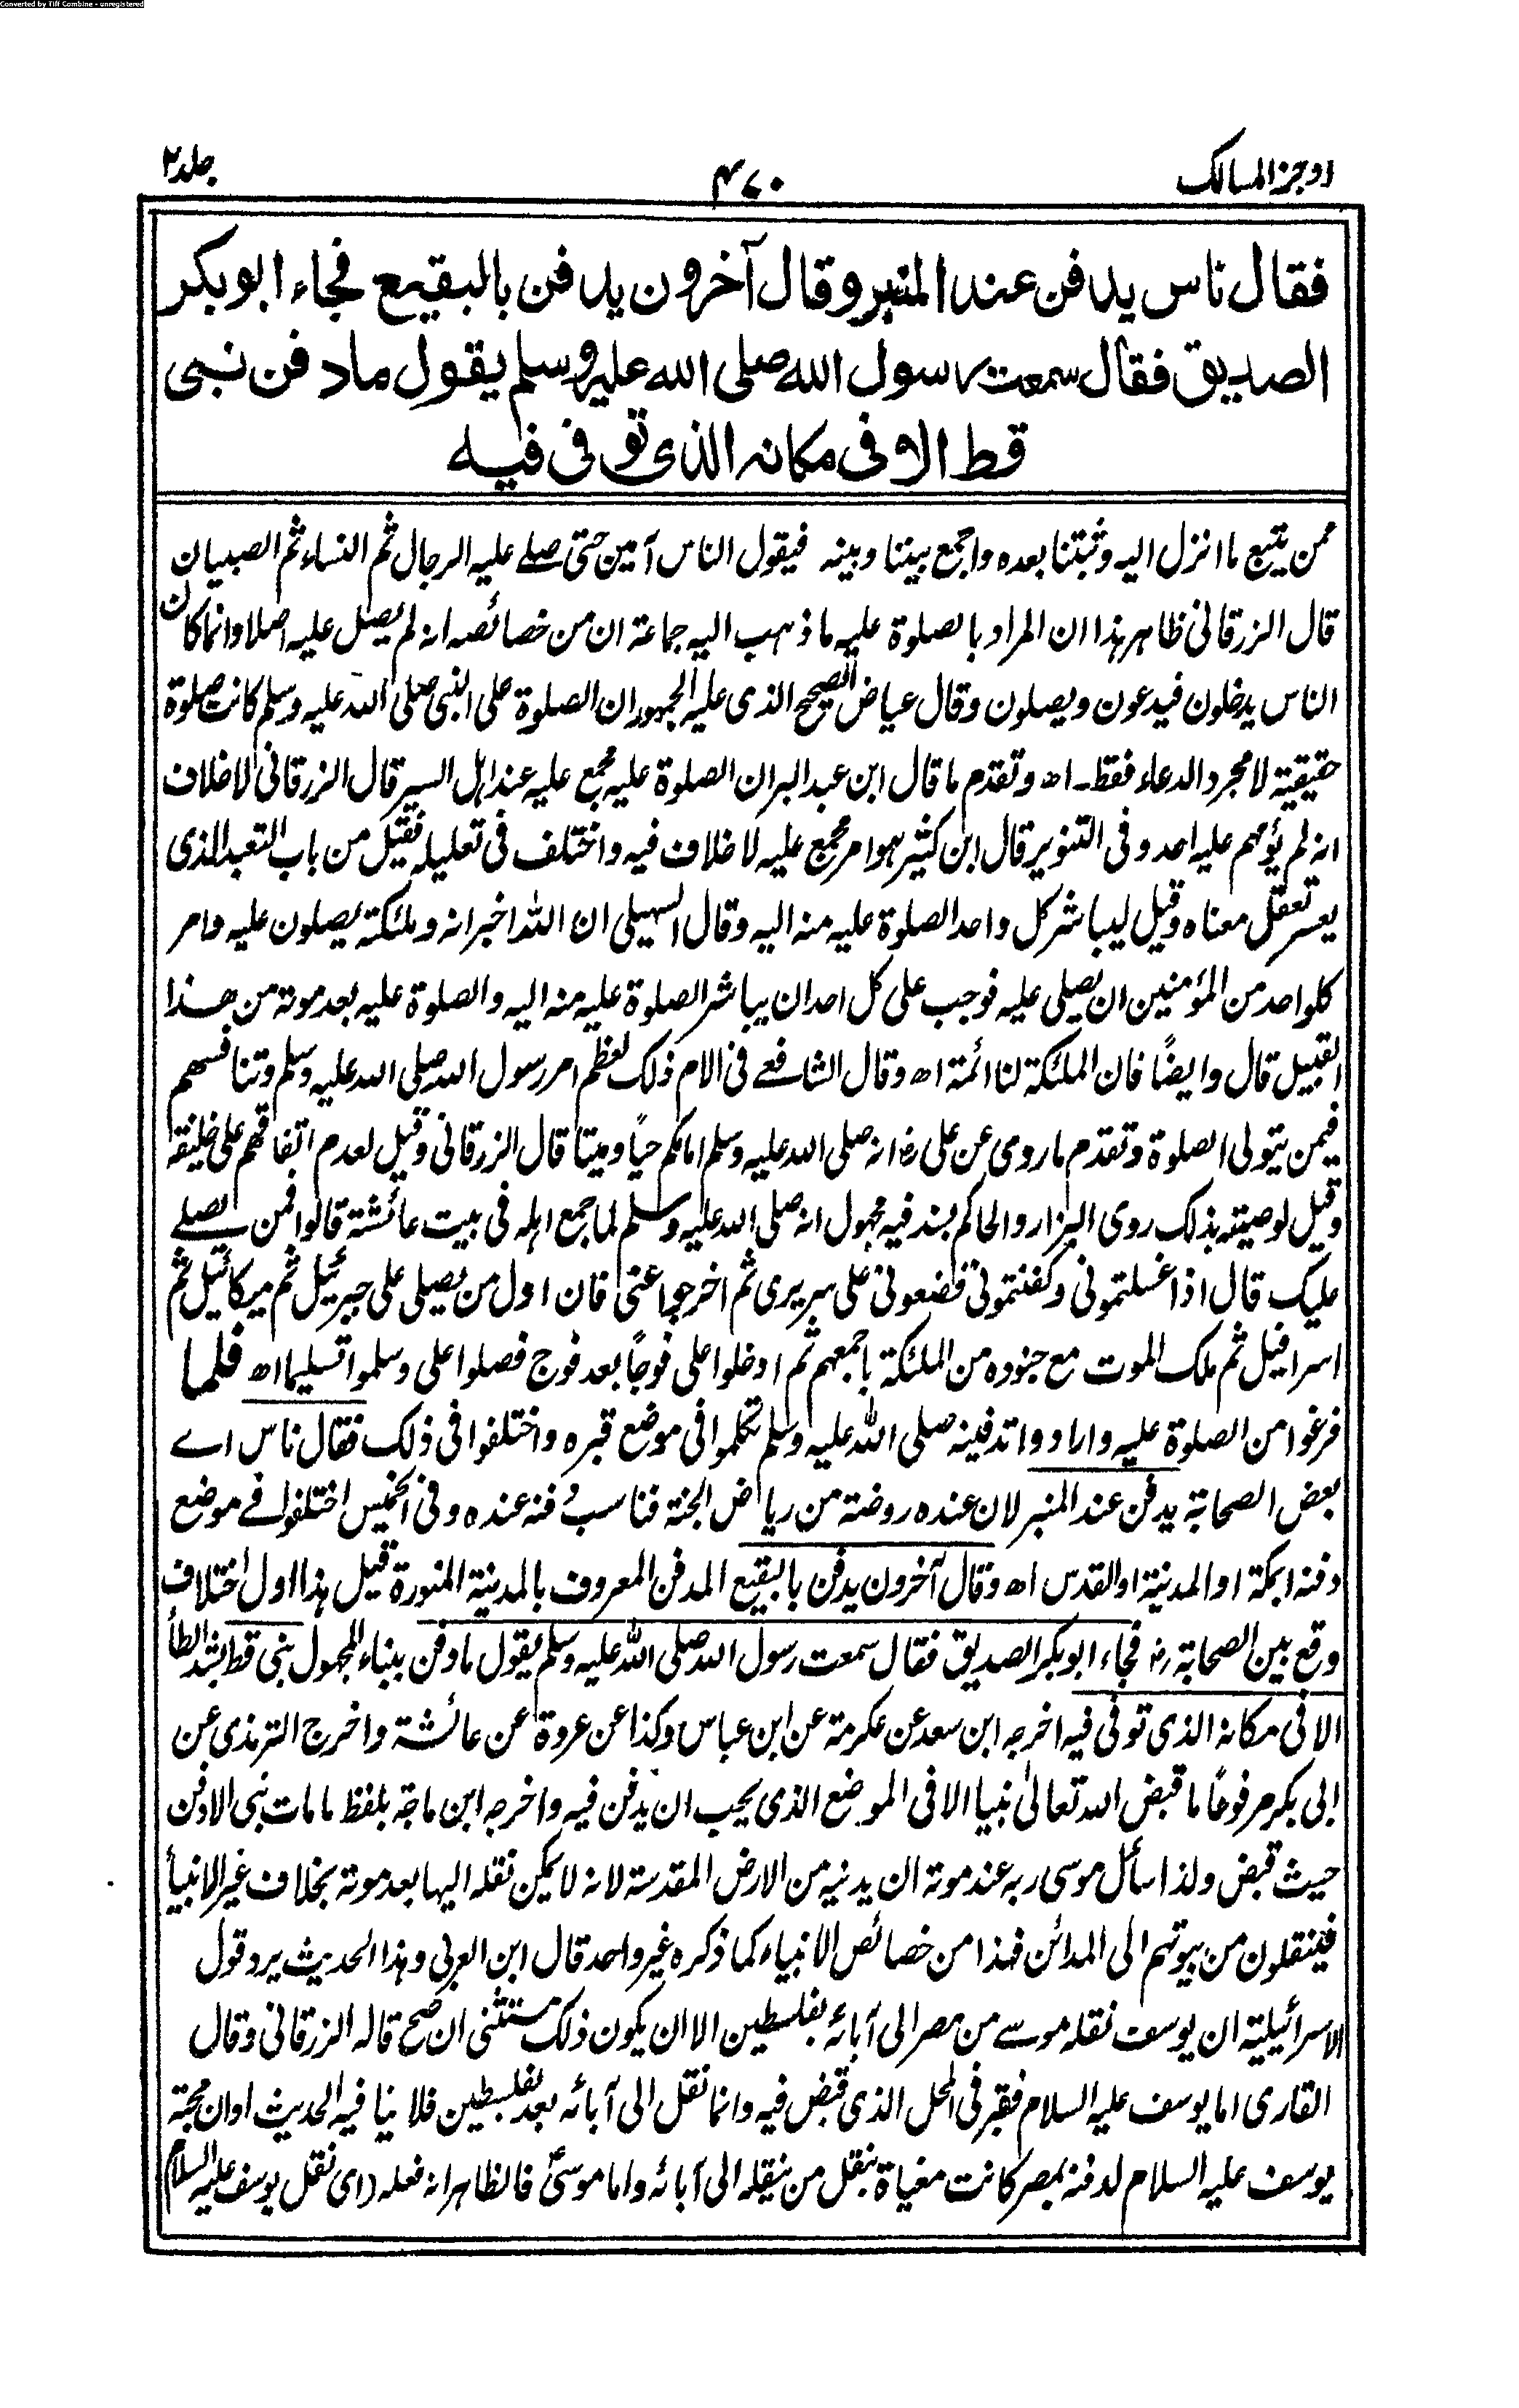 Converted by Tiff Combine - unregistered
اوجز المسالک
۴۷۰
جلد ۲
فقال ناس يدفن عند المنبر وقال آخرون يدفن بالبقيع فجاء ابوبكر
الصديق فقال سمعت رسول الله صلى الله عليه وسلم يقول ما دفن نبي
قط الا فى مكانه الذى توفى فيه
ممن يتبع ما انزل اليه وثبتنا بعده واجمع بيننا وبينه فيقول الناس آمين حتى صلے عليه الرجال ثم النساء ثم الصبيان
قال الزرقانى ظاهر هذا ان المراد بالصلوة عليه ما ذهب اليه جماعة ان من خصائصه انه لم يصل عليه اصلا وانما كان
الناس يدخلون فيدعون ويصلون وقال عياض الصحيح الذى عليه الجمهور ان الصلوة على النبى صلى الله عليه وسلم كانت صلوة
حقيقية لا مجرد الدعاء فقط۔ اھ وتقدم ما قال ابن عبد البر ان الصلوة عليه مجمع عليه عند اهل السير قال الزرقانى لا خلاف
انه لم يؤمهم عليه احد وفى التنوير قال ابن كثير هو امر مجمع عليه لا خلاف فيه واختلف فى تعليله فقيل من باب التعبد الذى
يعسر تعقل معناه وقيل ليباشر كل واحد الصلوة عليه منه اليه وقال السهيلى ان الله اخبر انه وملئكته يصلون عليه وامر
كلواحد من المؤمنين ان يصلى عليه فوجب على كل احد ان يباشر الصلوة عليه منه اليه والصلوة عليه بعد موته من هذا
القبيل قال وايضًا فان الملئكة لنا ائمة اھ وقال الشافعے فى الام ذلك لعظم امر رسول الله صلى الله عليه وسلم وتنافسهم
فيمن يتولى الصلوة وتقدم ما روى عن على رض انه صلى الله عليه وسلم امامكم حيًا وميتا قال الزرقانى وقيل لعدم اتفاقهم على خليفة
وقيل لوصيته بذلك روى البزار والحاكم بسند فيه مجهول انه صلى الله عليه وسلم لما جمع اهله فى بيت عائشة قالوا فمن يصلے
عليك قال اذا غسلتمونى وكفنتمونى فضعونى على سريرى ثم اخرجوا عنى فان اول من يصلى على جبرئيل ثم ميكائيل ثم
اسرافيل ثم ملك الموت مع جنوده من الملئكة باجمعهم ثم ادخلوا على فوجًا بعد فوج فصلوا على وسلموا تسليما اھ فلما
فرغوا من الصلوة عليه وارادوا تدفينه صلى الله عليه وسلم تكلموا فى موضع قبره واختلفوا فى ذلك فقال ناس اے
بعض الصحابة يدفن عند المنبر لان عنده روضة من رياض الجنة فناسب دفنه عنده وفى الخميس اختلفوا فے موضع
دفنه ابمكة او المدينة او القدس اھ وقال آخرون يدفن بالبقيع المدفن المعروف بالمدينة المنورة قيل هذا اول اختلاف
وقع بين الصحابة رض فجاء ابوبكر الصديق فقال سمعت رسول الله صلى الله عليه وسلم يقول ما دفن ببناء المجهول نبى قط بشد الطأ
الا فى مكانه الذى توفى فيه اخرجه ابن سعد عن عكرمة عن ابن عباس وكذا عن عروة عن عائشة واخرج الترمذى عن
ابى بكر مرفوعًا ما قبض الله تعالىٰ نبيا الا فى الموضع الذى يحب ان يدفن فيه واخرجه ابن ماجة بلفظ ما مات نبى الا دفن
حيث قبض ولذا سأل موسى ربه عند موته ان يدنيه من الارض المقدسة لانه لا يمكن نقله اليها بعد موته بخلاف غير الانبيأ
فينقلون من بيوتهم الى المدائن فهذا من خصائص الانبياء كما ذكره غير واحد قال ابن العربى وهذا الحديث يرد قول
الاسرائيلية ان يوسف نقله موسے من مصر الى آبائه بفلسطين الا ان يكون ذلك مستثنى ان صح قاله الزرقانى وقال
القارى اما يوسف عليه السلام فقبر فى المحل الذى قبض فيه وانما نقل الى آبائه بعد بفلسطين فلا ينافيه الحديث او ان محبة
يوسف عليه السلام لدفنه بمصر كانت مغياة بنقل من ينقله الى آبائه واما موسىٰ فالظاهر انه فعله (اى نقل يوسف عليه السلام